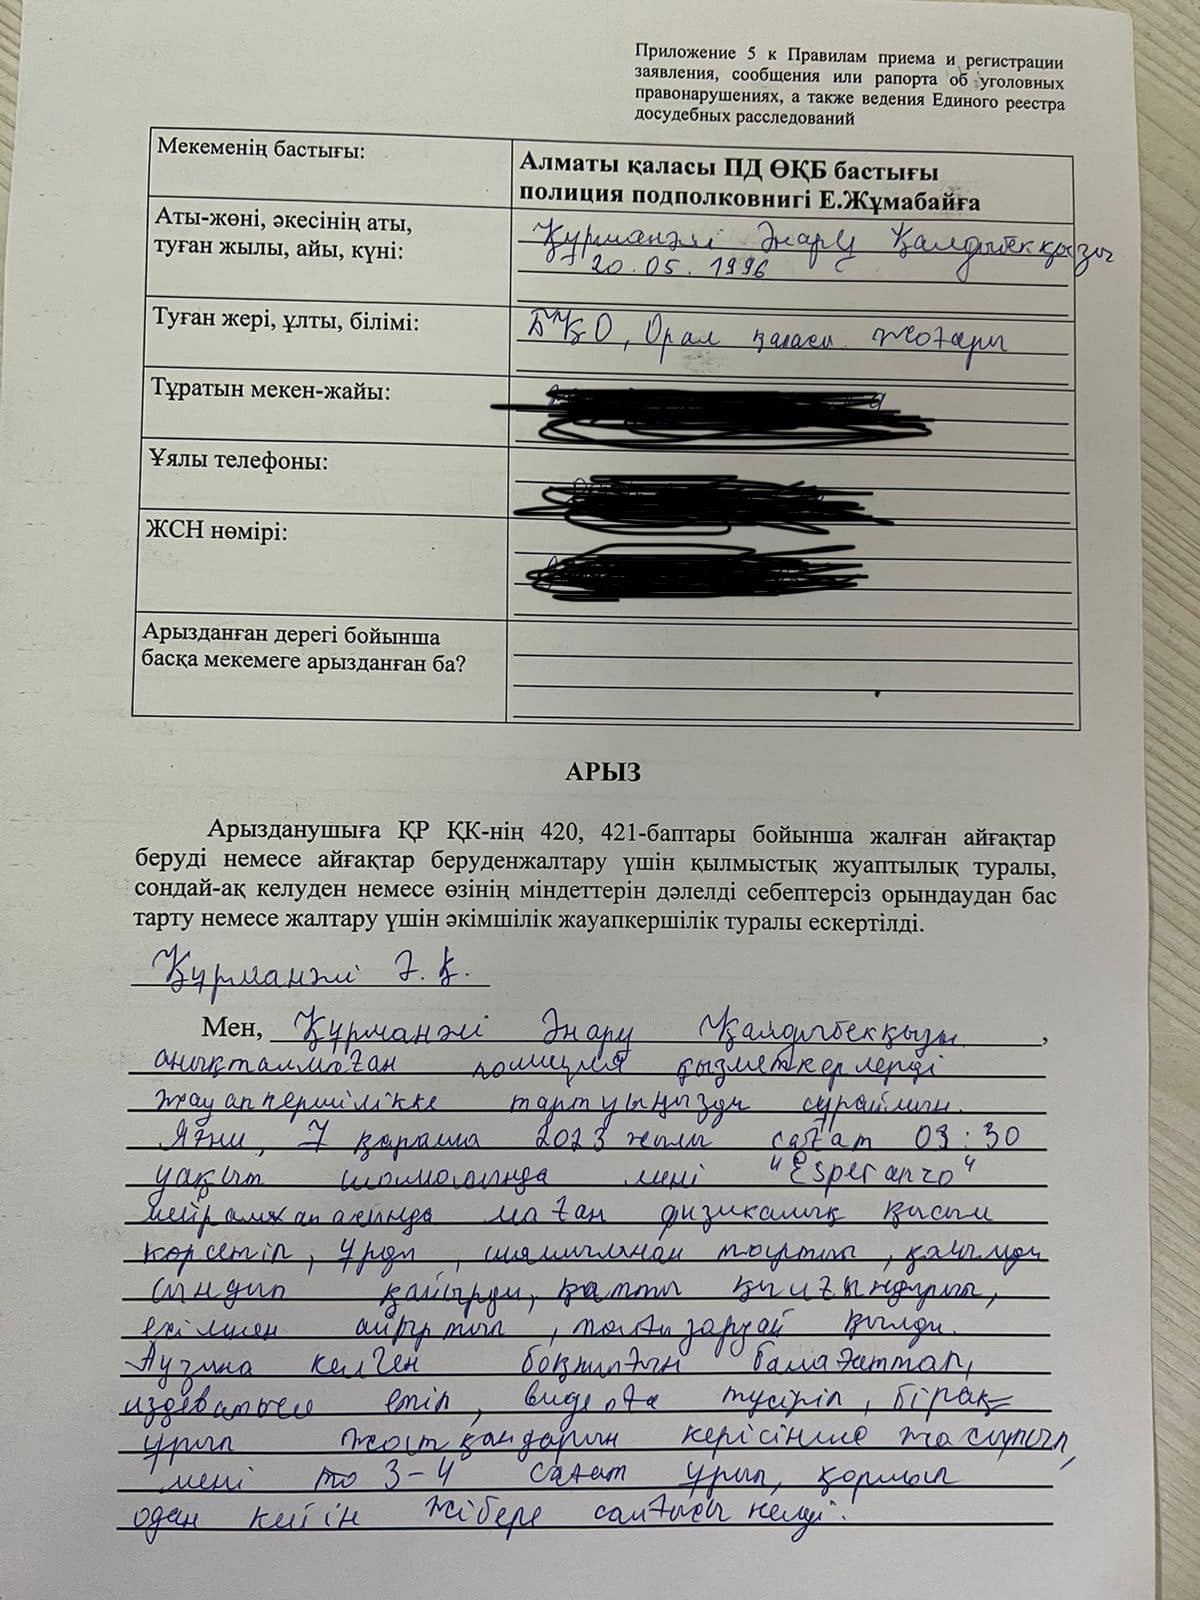 Приложение 5 к Правилам приема и регистрации
заявления, сообщения или рапорта об уголовных
правонарушениях, а также ведения Единого реестра
досудебных расследований
Мекеменің бастығы:
Алматы қаласы ПД ӨҚБ бастығы
полиция подполковнигі Е.Жұмабайға
Аты-жөні, әкесінің аты,
туған жылы, айы, күні:
Құрманәлі Әнару Қалдыбекқызы
20.05.1996
Туған жері, ұлты, білімі:
БҚО, Орал қаласы жоғары
Тұратын мекен-жайы:
Ұялы телефоны:
ЖСН нөмірі:
Арызданған дерегі бойынша
басқа мекемеге арызданған ба?
АРЫЗ
Арызданушыға ҚР ҚК-нің 420, 421-баптары бойынша жалған айғақтар
беруді немесе айғақтар беруденжалтару үшін қылмыстық жуаптылық туралы,
сондай-ақ келуден немесе өзінің міндеттерін дәлелді себептерсіз орындаудан бас
тарту немесе жалтару үшін әкімшілік жауапкершілік туралы ескертілді.
Құрманәлі Ә.Қ.
Мен, Құрманәлі Әнару Қалдыбекқызы,
анықталмаған полиция қызметкерлерді
жауапкершілікке тартуыңызды сұраймын.
Яғни, 7 қараша 2023 жылы сағат 03:30
уақыт шамасында мені "Esperanzo"
мейрамханасында маған физикалық қысым
көрсетіп, ұрды, шашымнан тартып, қолымды
сындырып қайырды, қатты қиғындырып,
есімнен айыртып, зардай қылды.
Аузына келген боқтығын балағаттап,
издевательс етіп, видеоға түсіріп, бірақ
ұрып жатқандарын керісінше жасырып,
мені то 3-4 сағат ұрып, қорлап
одан кейін жібере салғысы келді.